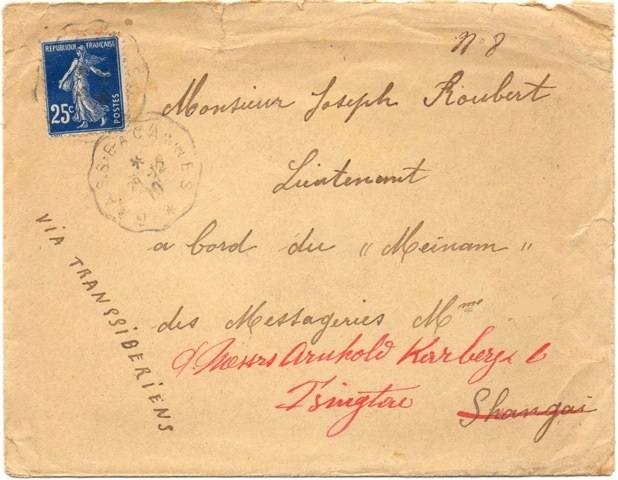 REPUBLIQUE FRANÇAISE
25c POSTES
GRASSE A CANNES
N° 8
Monsieur Joseph Roubert
Lieutenant
a bord du "Meinam"
des Messageries Mmes
c/ Messrs Arnhold Karberg & C
Tsingtau
Shangai
VIA TRANSSIBERIENS